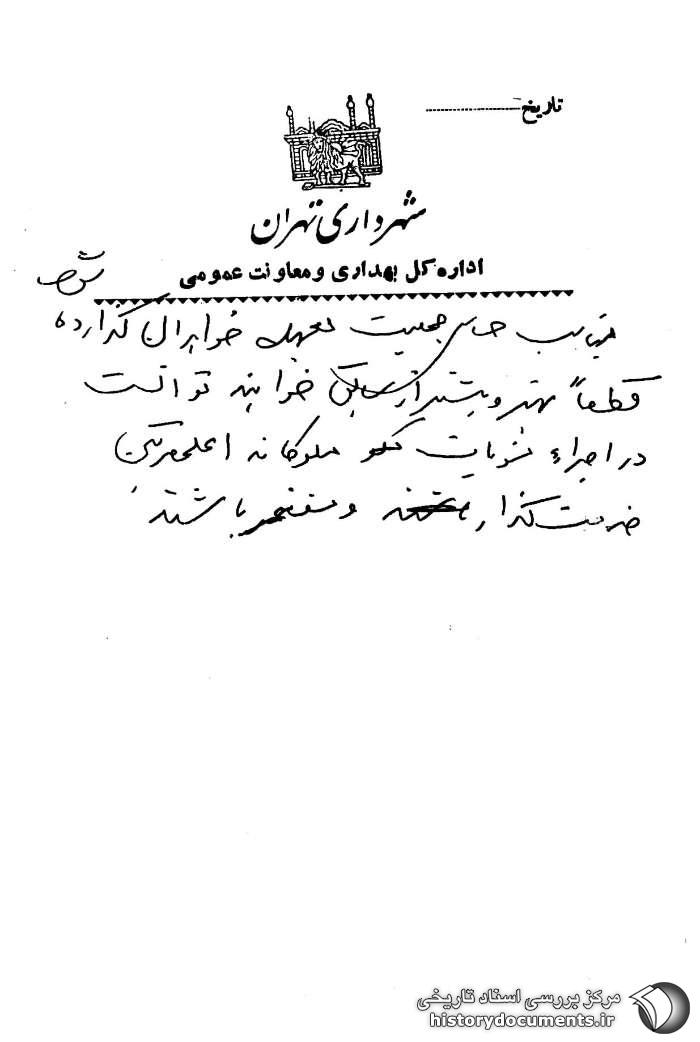 تاریخ
شهرداری تهران
اداره کل بهداری و معاونت عمومی
جمعیت بعهده خواهران گذارده
قطعاً بهتر و بیشتر از سابق خواهند توانست
در اجراء منویات ملوکانه اعلیحضرتین
خدمت‌گذار و مفتخر باشند
مرکز بررسی اسناد تاریخی
historydocuments.ir